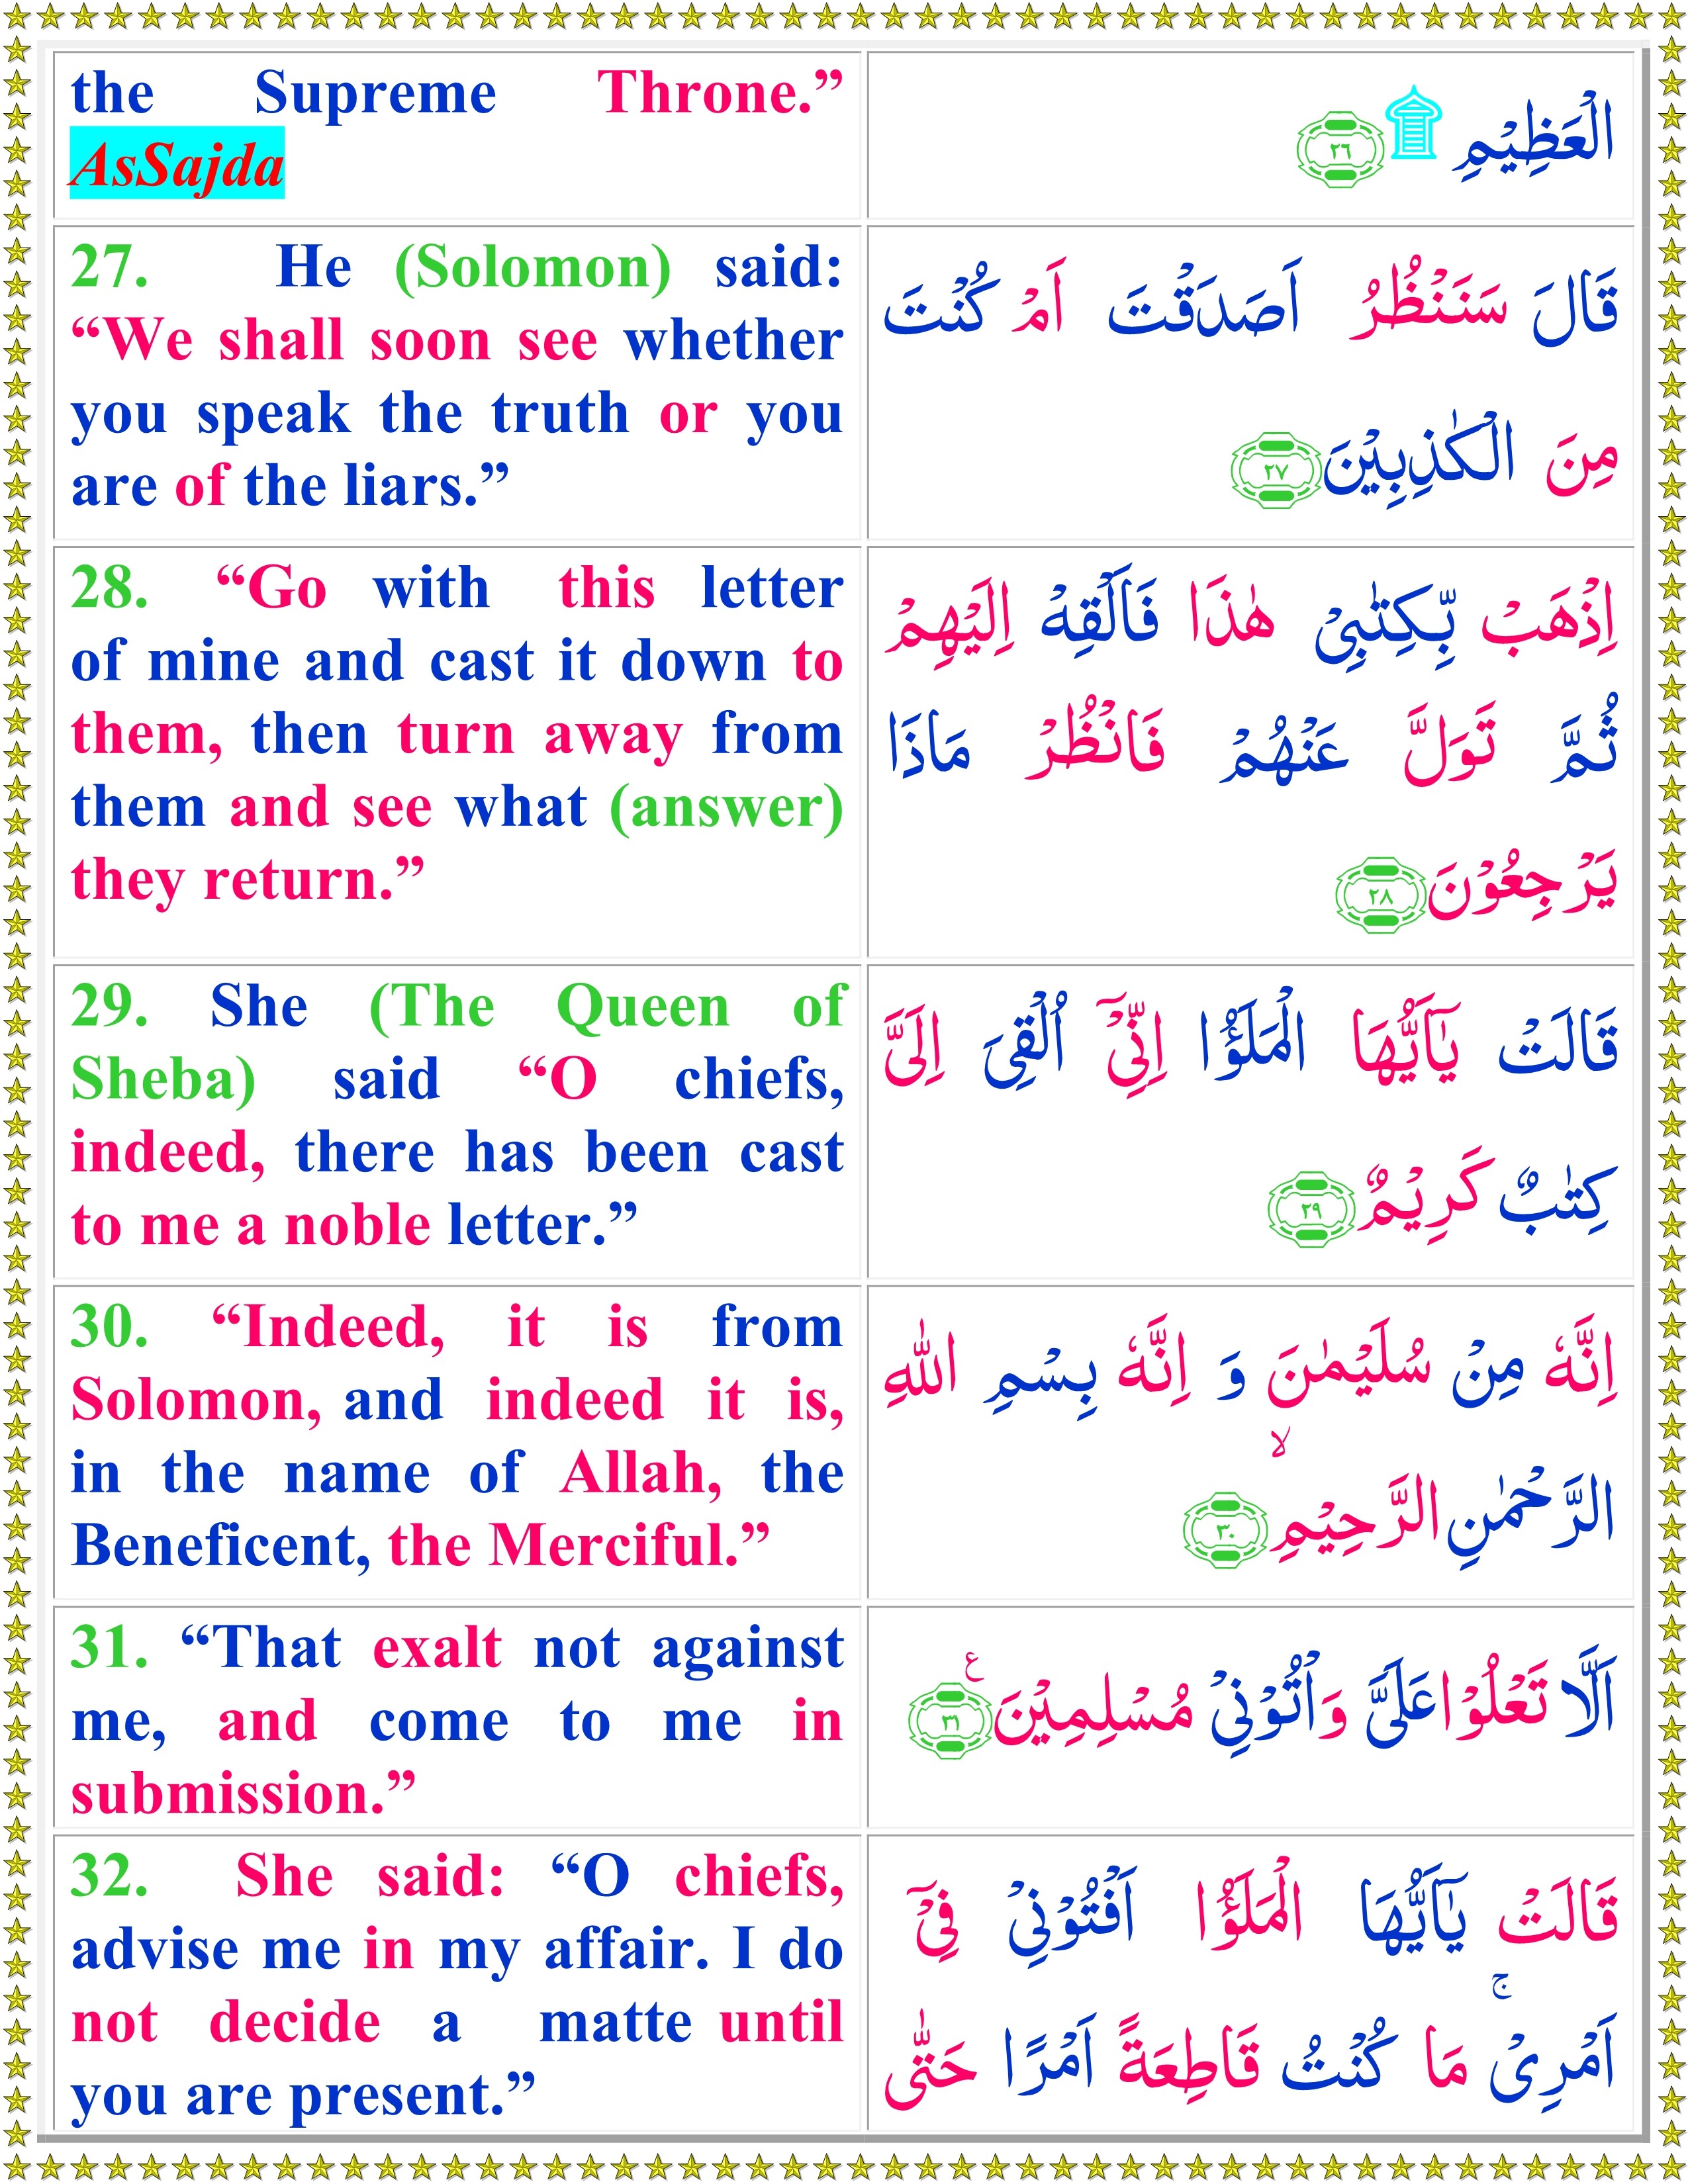 the Supreme Throne.”
AsSajda
الْعَظِيْمِ ۩ ﴿۲۶﴾
27. He (Solomon) said:
“We shall soon see whether
you speak the truth or you
are of the liars.”
قَالَ سَنَنْظُرُ اَصَدَقْتَ اَمْ كُنْتَ
مِنَ الْكٰذِبِيْنَ ﴿۲۷﴾
28. “Go with this letter
of mine and cast it down to
them, then turn away from
them and see what (answer)
they return.”
اِذْهَبْ بِّكِتٰبِيْ هٰذَا فَاَلْقِهْ اِلَيْهِمْ
ثُمَّ تَوَلَّ عَنْهُمْ فَانْظُرْ مَاذَا
يَرْجِعُوْنَ ﴿۲۸﴾
29. She (The Queen of
Sheba) said “O chiefs,
indeed, there has been cast
to me a noble letter.”
قَالَتْ يٰۤاَيُّهَا الْمَلَؤُا اِنِّيْۤ اُلْقِيَ اِلَيَّ
كِتٰبٌ كَرِيْمٌ ﴿۲۹﴾
30. “Indeed, it is from
Solomon, and indeed it is,
in the name of Allah, the
Beneficent, the Merciful.”
اِنَّهٗ مِنْ سُلَيْمٰنَ وَ اِنَّهٗ بِسْمِ اللّٰهِ
الرَّحْمٰنِ الرَّحِيْمِۙ ﴿۳۰﴾
31. “That exalt not against
me, and come to me in
submission.”
اَلَّا تَعْلُوْا عَلَيَّ وَاْتُوْنِيْ مُسْلِمِيْنَ ع ﴿۳۱﴾
32. She said: “O chiefs,
advise me in my affair. I do
not decide a matte until
you are present.”
قَالَتْ يٰۤاَيُّهَا الْمَلَؤُا اَفْتُوْنِيْ فِيْۤ
اَمْرِيْۚ مَا كُنْتُ قَاطِعَةً اَمْرًا حَتّٰى